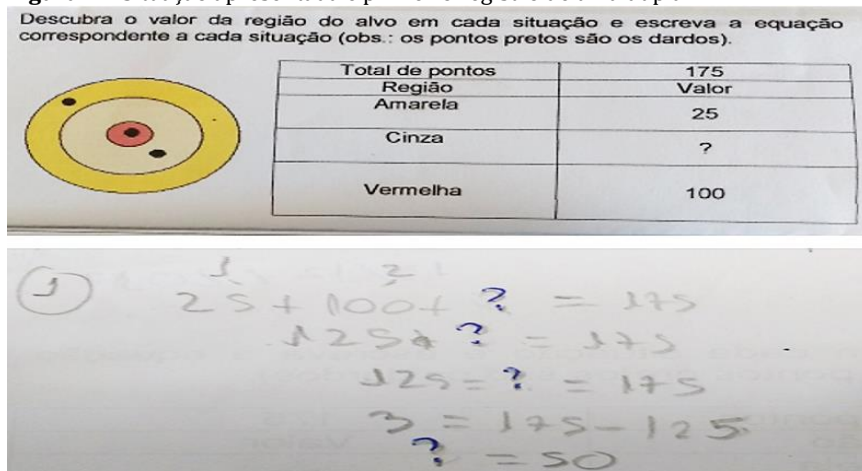 Descubra o valor da região do alvo em cada situação e escreva a equação
correspondente a cada situação (obs.: os pontos pretos são os dardos).
Total de pontos 175
Região Valor
Amarela 25
Cinza ?
Vermelha 100
1
1 2
25 + 100 + ? = 175
125 + ? = 175
125 = ? = 175
? = 175 - 125
? = 50